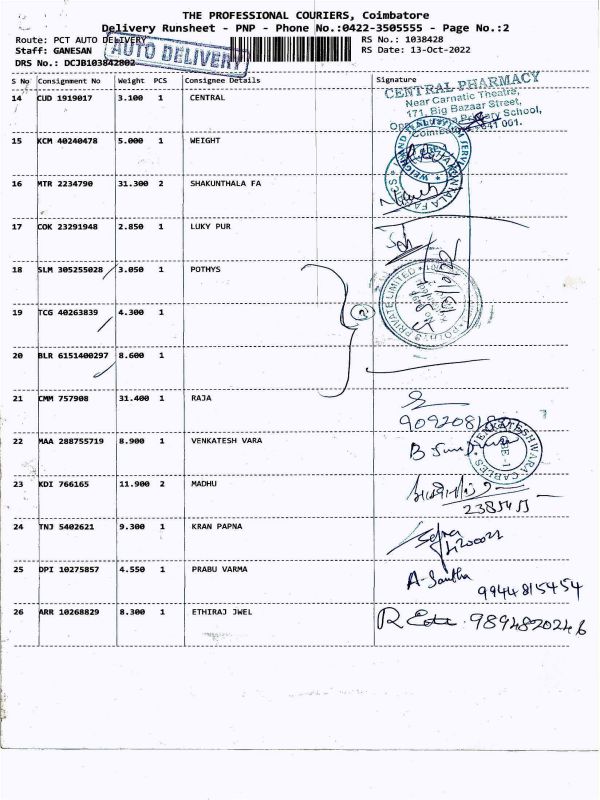 THE PROFESSIONAL COURIERS, Coimbatore
Delivery Runsheet - PNP - Phone No.:0422-3505555 - Page No.:2
Route: PCT AUTO DELIVERY RS No.: 1038428
Staff: GANESAN RS Date: 13-Oct-2022
DRS No.: DCJB103842802
AUTO DELIVERY
S No Consignment No Weight PCS Consignee Details Signature
14 CUD 1919017 3.100 1 CENTRAL
CENTRAL PHARMACY
Near Carnatic Theatre,
171, Big Bazaar Street,
School,
641 001.
15 KCM 40240478 5.000 1 WEIGHT
16 MTR 2234790 31.300 2 SHAKUNTHALA FA
17 COK 23291948 2.850 1 LUKY PUR
18 SLM 305255028 3.050 1 POTHYS
PRIVATE LIMITED
19 TCG 40263839 4.300 1
20 BLR 6151400297 8.600 1
21 CMM 757908 31.400 1 RAJA
22 MAA 288755719 8.900 1 VENKATESH VARA
VENKATESHWARA CABLES
CBE-1
23 KDI 766165 11.900 2 MADHU
24 TNJ 5402621 9.300 1 KRAN PAPNA
25 DPI 10275857 4.550 1 PRABU VARMA
A-Santha 9944815454
26 ARR 10268829 8.300 1 ETHIRAJ JWEL
9894820246